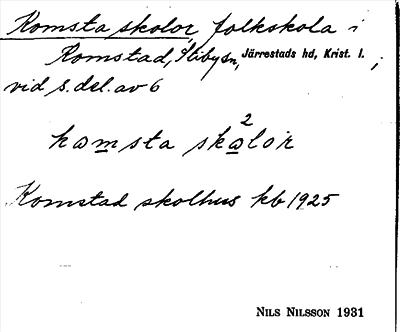 Komsta skolor, folkskola i
Komstad, Stiby sn, Järrestads hd, Krist. l. ;
vid s. del. av 6
komsta skolor
2
Komstad skolhus kb 1925
NILS NILSSON 1931